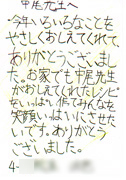 中尾先生へ
今年いろいろなことを
やさしくおしえてくれて、
ありがとうございまし
た。お家でも中尾先生
がおしえてくれたレシピ
をいっぱい作てみんなを
笑顔いっぱいにさせた
いです。ありがとう
ございました。
4-